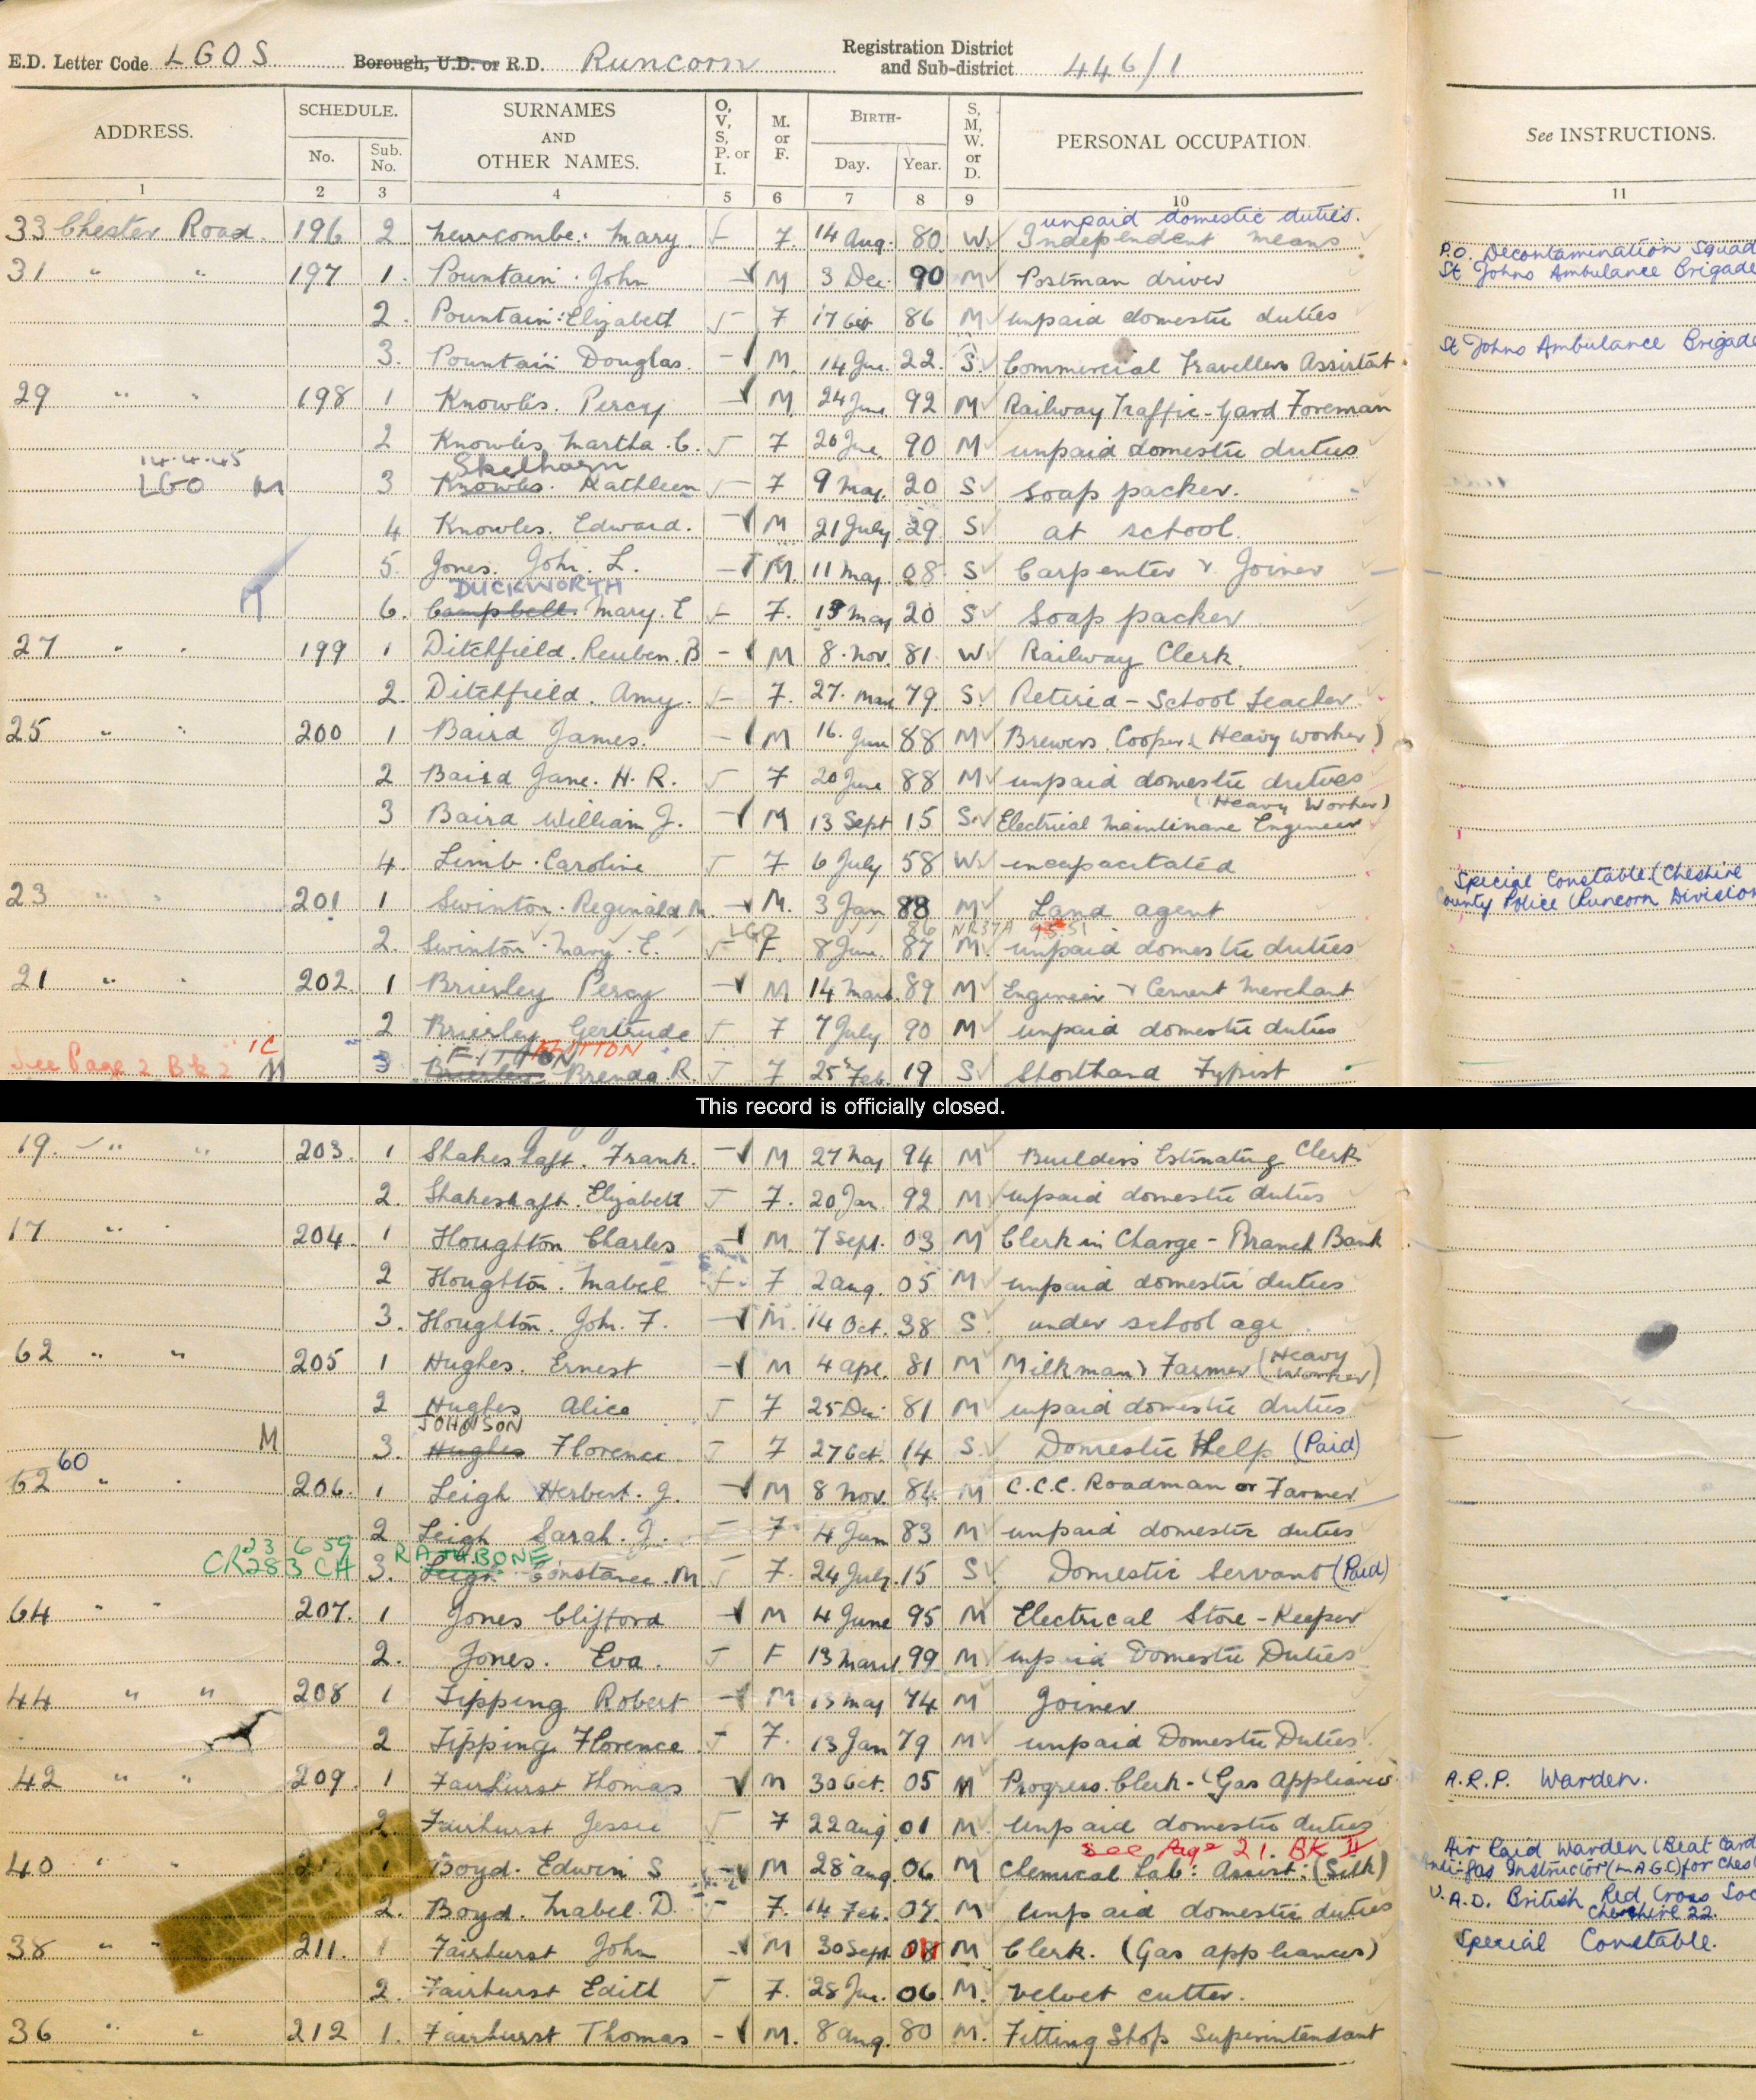 E.D. Letter Code LGOS Borough, U.D. or R.D. Runcorn Registration District and Sub-district 446/1
ADDRESS. SCHEDULE. No. Sub. No. SURNAMES AND OTHER NAMES. O, V, S, P. or I. M. or F. BIRTH- Day. Year. S, M, W. or D. PERSONAL OCCUPATION. See INSTRUCTIONS.
1 2 3 4 5 6 7 8 9 10 11
unpaid domestic duties.
33 Chester Road. 196 2 Newcombe. Mary. F. 14 Aug. 80 W. Independent means
P.O. Decontamination Squad
31 " " 197 1. Pountain. John M 3 Dec. 90 M Postman driver St Johns Ambulance Brigade
2. Pountain: Elizabeth F 17 Oct 86 M unpaid domestic duties
3. Pountain Douglas. M. 14 Jne. 22. S. Commercial Travellers Assistant St Johns Ambulance Brigade
29 " " 198 1 Knowles. Percy M 24 June 92 M Railway Traffic-Yard Foreman
2 Knowles. Martha. C. F 20 Jne. 90 M unpaid domestic duties
14.4.45 Skelhorn
LGO M 3 Knowles. Kathleen F 9 May. 20 S Soap packer.
4 Knowles. Edward. M 21 July 29 S at school.
5. Jones. John. L. M. 11 May. 08 S Carpenter & Joiner
DUCKWORTH
M 6. Campbell. Mary. E F. 19 May 20 S Soap packer
27 " " 199 1 Ditchfield. Reuben. B M 8. Nov. 81 W. Railway Clerk.
2. Ditchfield. Amy. F. 27. Mar 79. S. Retired - School Teacher.
25 " " 200 1 Baird James. M 16. Jun 88 M Brewers Cooper (Heavy Worker)
2 Baird Jane. H. R. F 20 June 88 M unpaid domestic duties
(Heavy Worker)
3 Baird William J. M 13 Sept 15 S. Electrical Maintinane Engineer
4. Limb. Caroline F 6 July 58 W. incapacitated
Special Constable (Cheshire
23 " " 201 1 Swinton. Reginald M M. 3 Jan 88 M Land agent County Police (Runcorn Division
LGO 86 NR37A 9.5.51
2. Swinton. Mary. E. F. 8 June. 87 M. unpaid domestic duties
21 " " 202. 1 Brierley Percy M 14 March. 89 M Engineer & Cement Merchant
2 Brierley Gertrude F 7 July 90 M unpaid domestic duties
1C FLITTON
See Page 2 Bk 2 M 3 Brierley Brenda. R. F 25 Feb. 19 S Shorthand Typist
This record is officially closed.
19. " " 203. 1 Shakeshaft. Frank. M 27 May 94 M Builders Estimating Clerk
2. Shakeshaft. Elizabeth F. 20 Jan. 92. M unpaid domestic duties
17 " " 204. 1 Houghton Charles M. 7 Sept. 03 M Clerk in Charge - Branch Bank
2 Houghton. Mabel F 2 Aug. 05 M unpaid domestic duties
3. Houghton. John. F. M. 14 Oct. 38 S. under school age
62 " " 205 1 Hughes. Ernest M 4 Apl. 81 M Milkman & Farmer (Heavy Worker)
2 Hughes Alice F 25 Dec. 81 M unpaid domestic duties
JOHNSON
M 3. Hughes Florence F 27 Oct. 14 S. Domestic Help (Paid)
60
62 " " 206. 1 Leigh Herbert. J. M 8 Nov. 84. M C.C.C. Roadman or Farmer
2 Leigh Sarah. J. F. 4 Jan 83 M unpaid domestic duties
23 6 59 RATHBONE
CR283 CH 3. Leigh Constance. M F. 24 July. 15 S Domestic Servant (Paid)
64 " " 207. 1 Jones Clifford M 4 June 95 M Electrical Store-Keeper
2. Jones. Eva. F 13 March 99 M unpaid Domestic Duties
44 " " 208 1 Tipping Robert M 13 May 74 M Joiner
2 Tipping. Florence. F. 13 Jan 79 M unpaid Domestic Duties.
42 " " 209. 1 Fairhurst Thomas M 30 Oct. 05 M Progress. Clerk - (Gas Appliances A.R.P. Warden.
2. Fairhurst Jessie F 22 Aug 01 M unpaid domestic duties
See Page 21. BK II Air Raid Warden (Beat Card
40 " " 1 Boyd. Edwin S M 28 Aug. 06 M Chemical Lab: Assist: (Silk) Anti-gas Instructor (L.A.G.C) for Ches
2. Boyd. Mabel. D. F. 14 Feb. 07. M unpaid domestic duties V.A.D. British Red Cross Soc
Cheshire 22.
38 " " 211. 1 Fairhurst John M 30 Sept. 08 M Clerk. (Gas appliances) Special Constable.
2. Fairhurst Edith F. 28 Jne. 06 M. Velvet cutter.
36 " " 212 1. Fairhurst Thomas M. 8 Aug. 80 M. Fitting Shop Superintendant